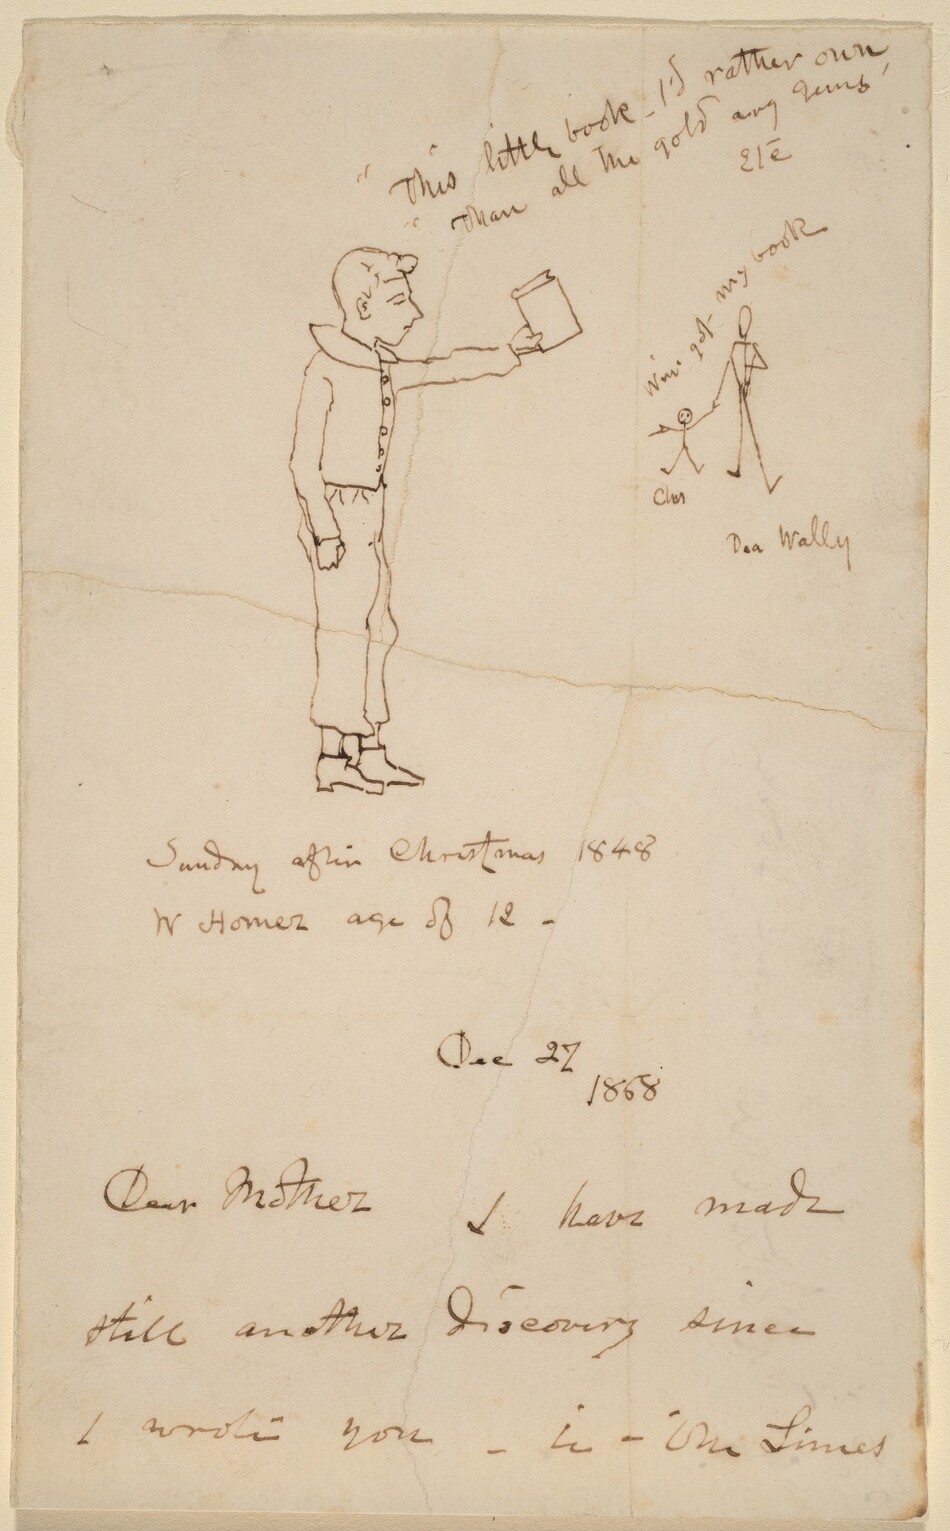 "This little book - I'd rather own
"than all the gold and gems'
Etc
Win's got my book
Chas
Dea Wally
Sunday after Christmas 1848
W Homer age of 12 -
Dec 27
1868
Dear Mother I have made
still another discovery since
I wrote you - in - the Times